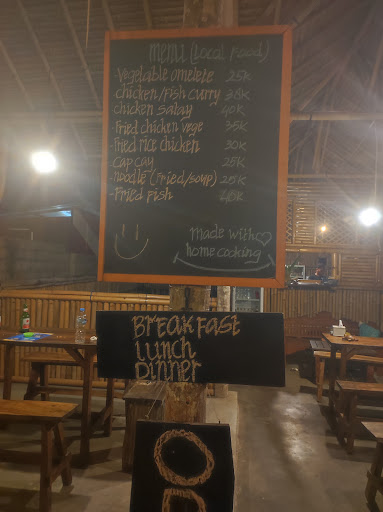 menu (Local Food)
-Vegetable omelete 25K
-chicken/fish curry 38K
-chicken satay 40K
-Fried chicken vege 35K
-Fried rice chicken 30K
-cap cay 25K
-noodle (Fried/soup) 25K
-Fried fish
made with
home cooking
BREAKFAST
LUNCH
DINNER